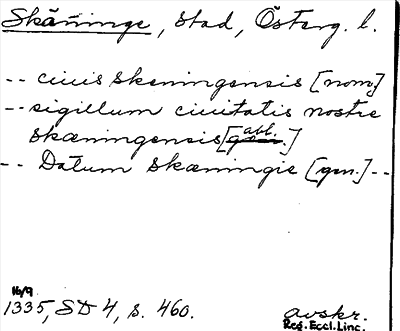 Skänninge, stad, Österg. l.
-- ciuis skeningensis [nom.]
-- sigillum ciuitatis nostre
skæningensis [abl.]
-- Datum skæningie [gen.] --
16/9
1335, SD 4, s. 460.
avskr.
Reg. Eccl. Linc.